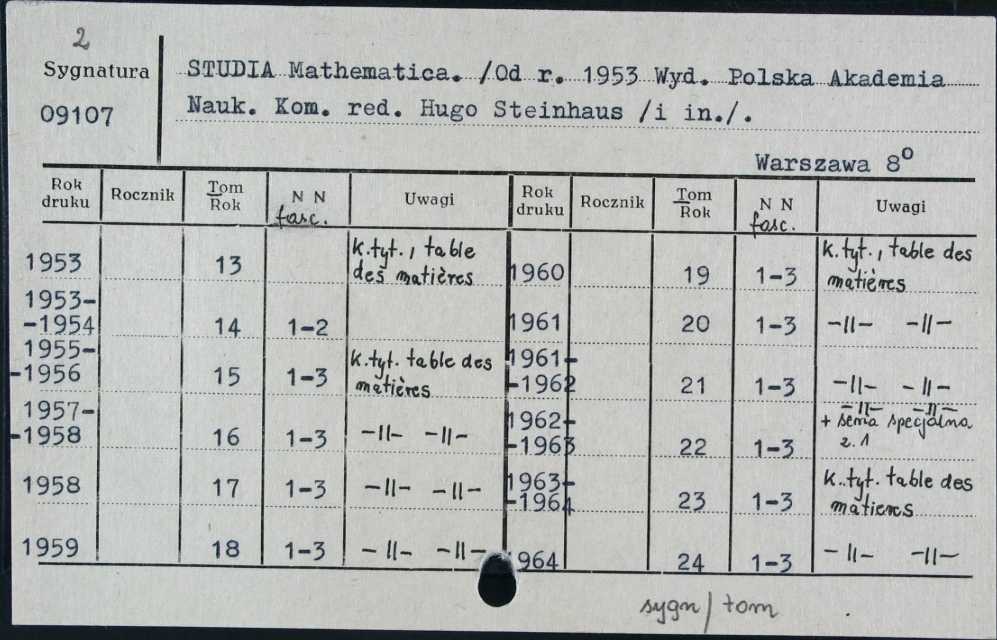 2
Sygnatura
09107
STUDIA Mathematica. /Od r. 1953 Wyd. Polska Akademia
Nauk. Kom. red. Hugo Steinhaus /i in./.
Warszawa 8°
Rok druku Rocznik Tom/Rok N N fasc. Uwagi Rok druku Rocznik Tom/Rok N N fasc. Uwagi
1953 13 k.tyt., table des matières
1953-
-1954 14 1-2
1955-
-1956 15 1-3 k.tyt. table des matières
1957-
-1958 16 1-3 -11- -11-
1958 17 1-3 -11- -11-
1959 18 1-3 -11- -11-
1960 19 1-3 k.tyt., table des matières
1961 20 1-3 -11- -11-
1961-
-1962 21 1-3 -11- -11-
1962-
-1963 22 1-3 -11- -11- + seria specjalna z.1
1963-
-1964 23 1-3 k.tyt. table des matieres
964 24 1-3 -11- -11-
sygn/tom